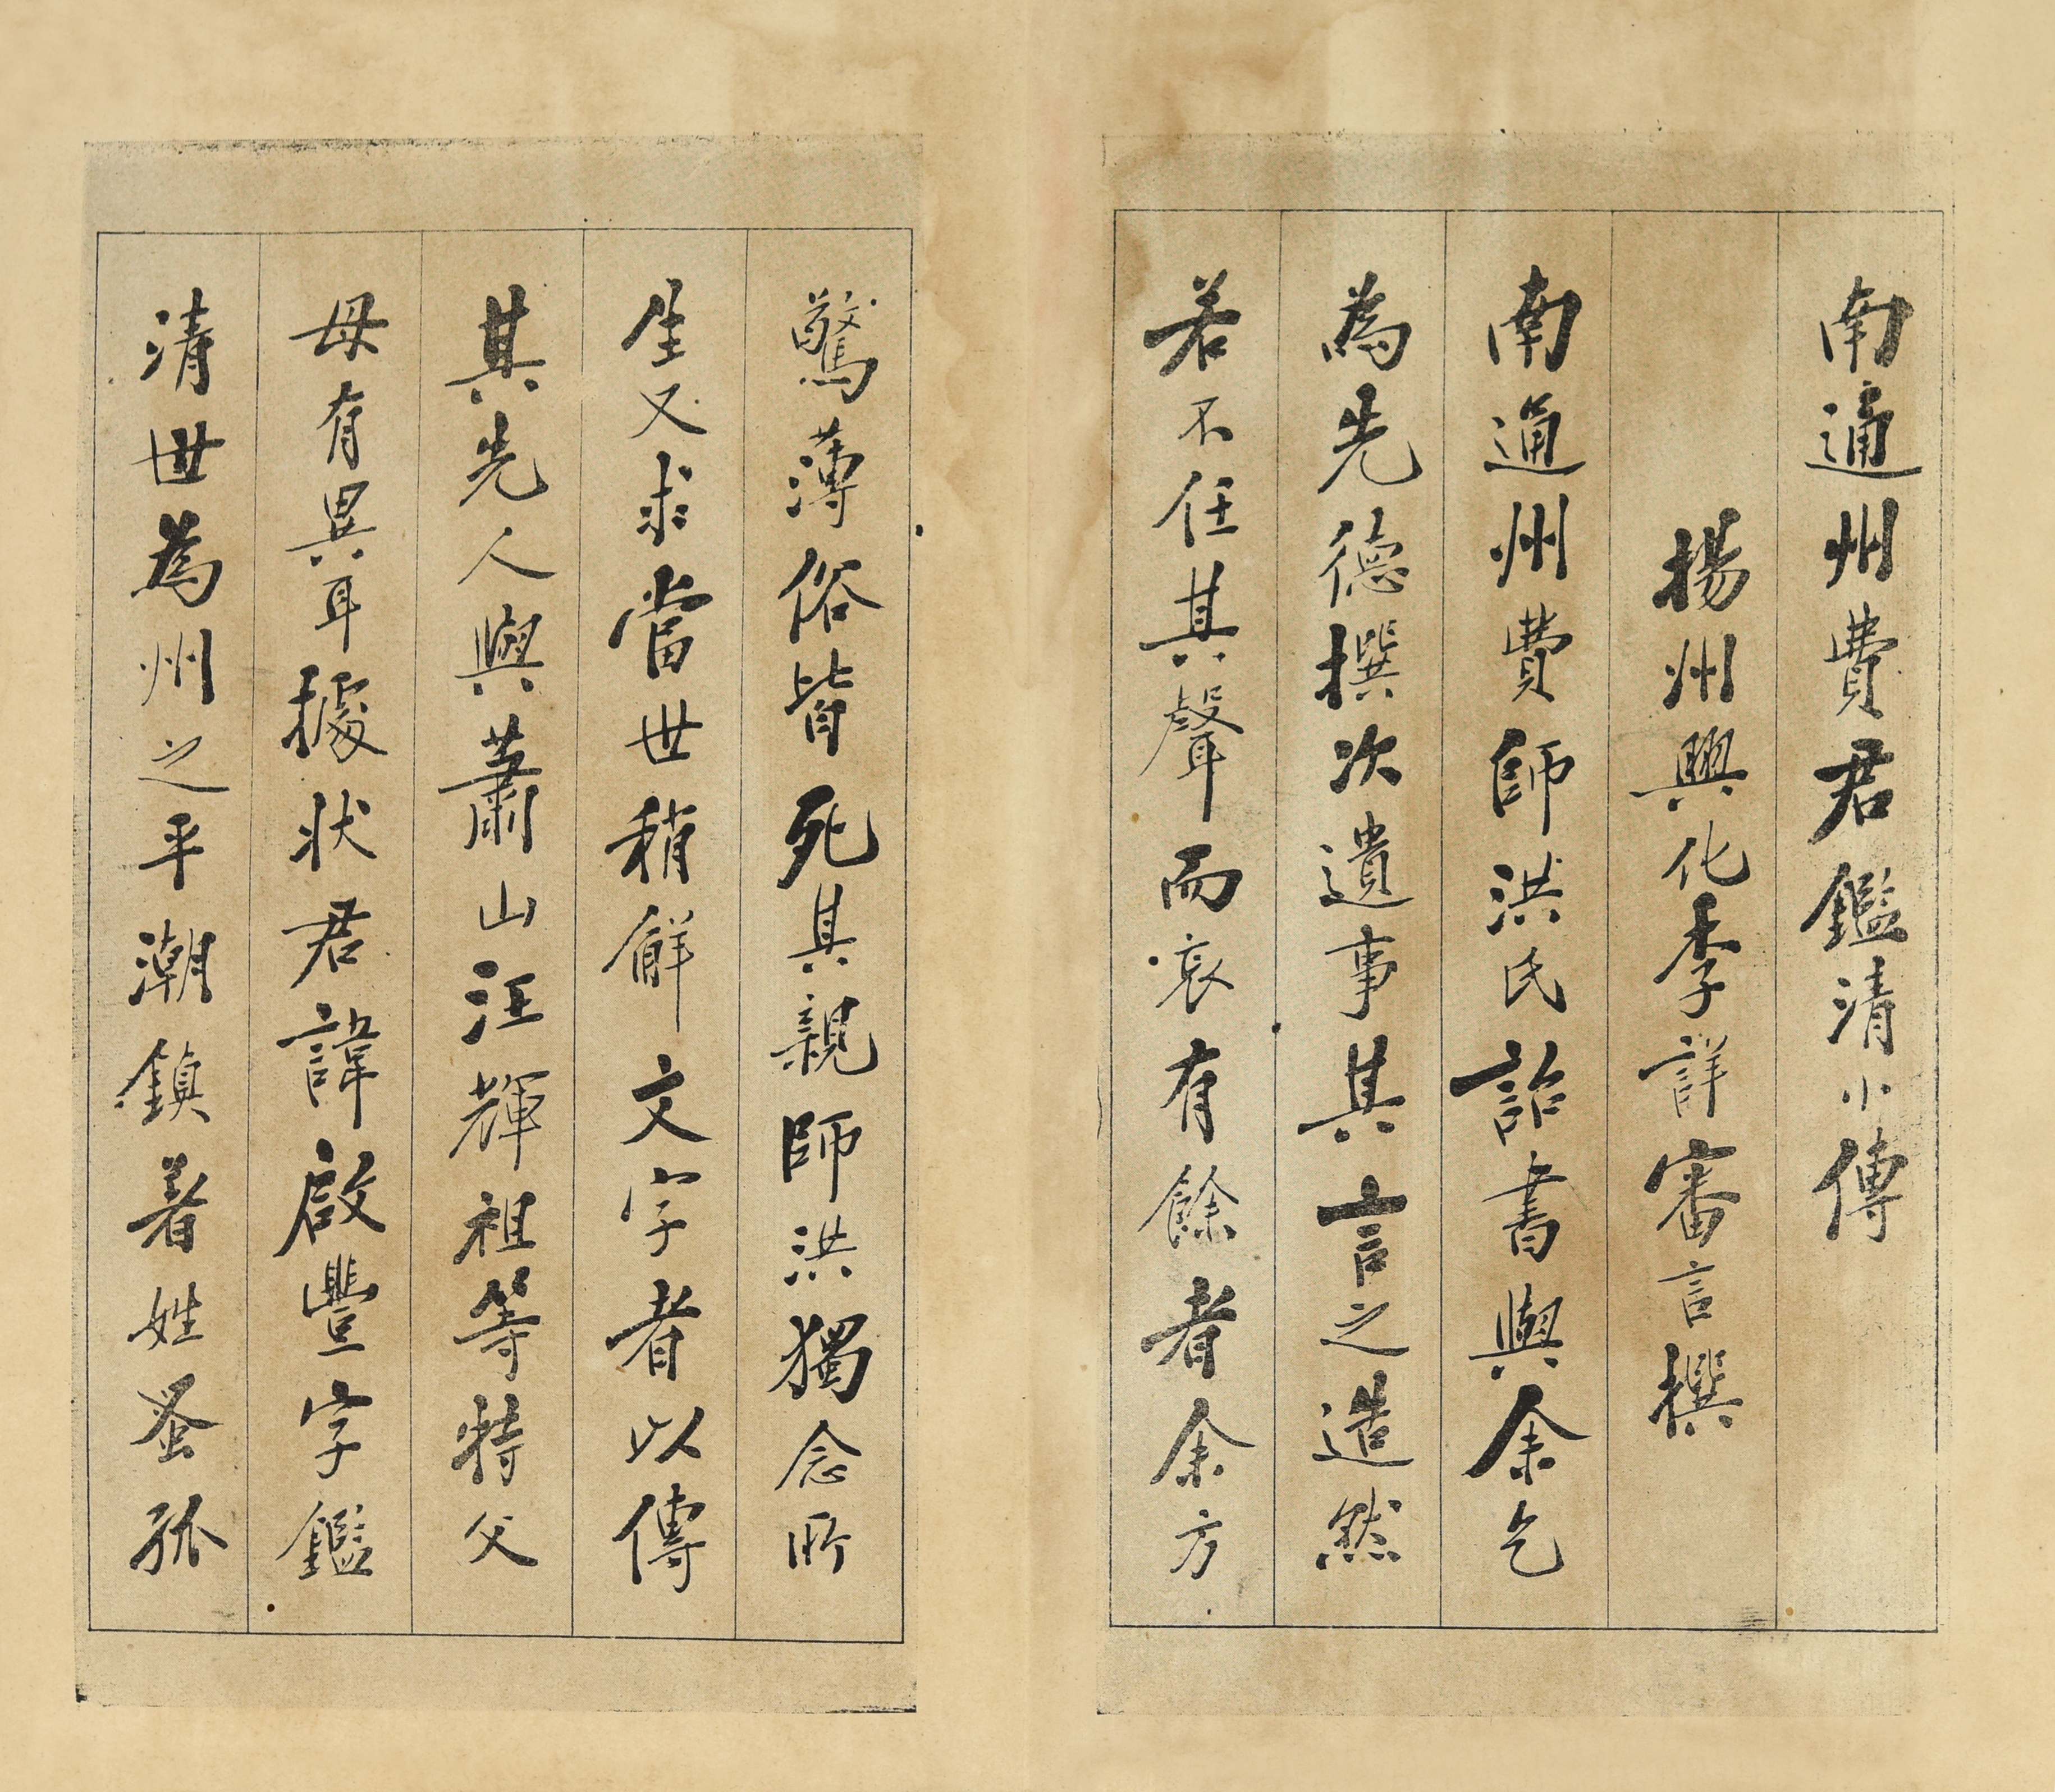 南通州費君鑑清小傳
揚州興化李詳審言撰
南通州費師洪氏詒書與余乞
為先德撰次遺事其言之造然
若不任其聲而哀有餘者余方
驚薄俗皆死其親師洪獨念所
生又求當世稍解文字者以傳
其先人與蕭山汪輝祖等特父
母有異耳據狀君諱啟豐字鑑
清世為州之平潮鎮著姓蚤孤